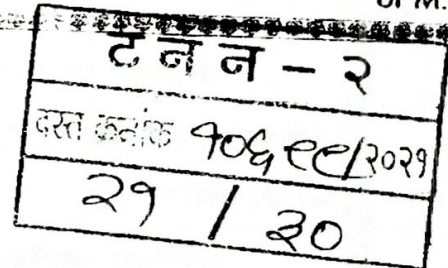 ट न न - २
दस्त क्रमांक १०६९९/२०२१
२१ / ३०